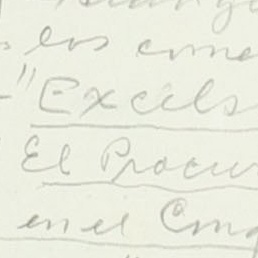 los
"Excels
El Procu
en el Con